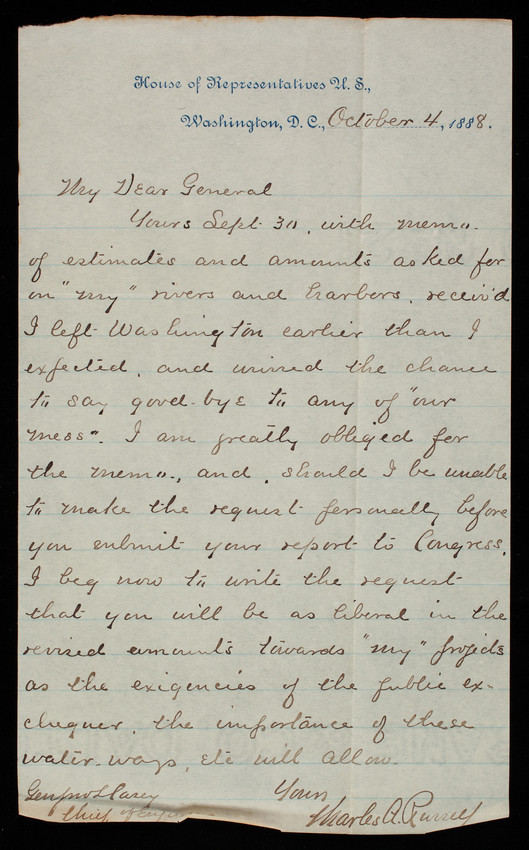 House of Representatives U. S.,
Washington, D. C., October 4, 1888.
My Dear General
Yours Sept 30, with memo.
of estimates and amounts asked for
on "my" rivers and harbors, receiv'd
I left Washington earlier than I
expected, and missed the chance
to say good-bye to any of "our
mess". I am greatly obliged for
the memo., and, should I be unable
to make the request personally before
you submit your report to Congress,
I beg now to write the request
that you will be as liberal in the
revised amounts towards "my" projects
as the exigencies of the public ex-
chequer, the importance of these
water-ways, etc will allow.
Yours,
Genl Jno L Casey
Charles A. Russell
Chief of